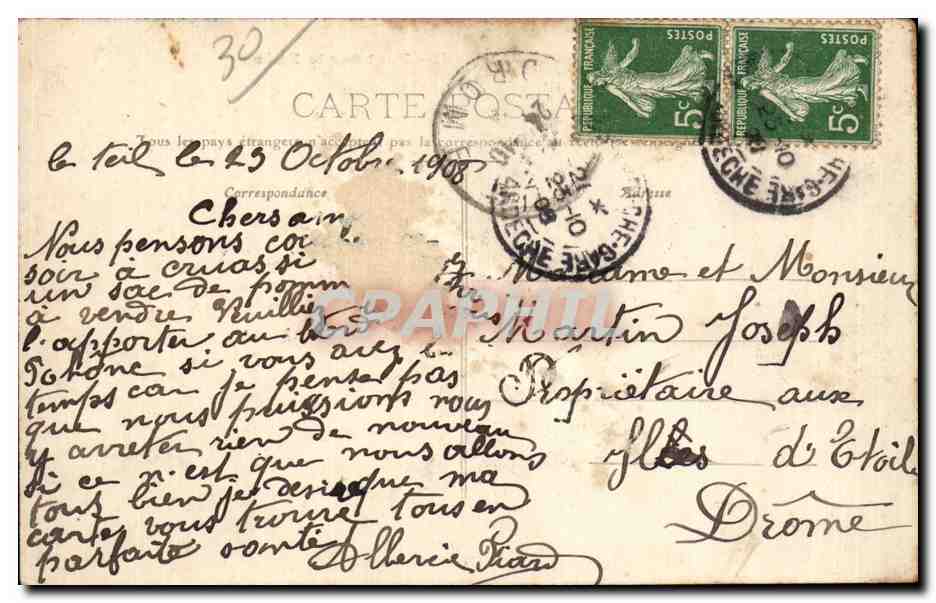 30
CARTE POSTA
Tous les pays étrangers n'acceptent pas la correspondance au
le teil le 23 Octobre 1908
Correspondance
Adresse
REPUBLIQUE FRANÇAISE
POSTES
5c
REPUBLIQUE FRANÇAISE
POSTES
5c
ARDECHE
Chers am
Nous pensons
soir à cruas si
un sac de pomm
à vendre Veuillie
l'apporter au bord
si vous avez le
temps car je pense pas
que nous puissions vous
y arreter rien de nouveau
si ce n'est que nous allons
tous bien je desire que ma
carte vous trouve tous en
parfaite santé
Madame et Monsieur
Martin Joseph
Propriëtaire aux
Iles d'Etoile
Drôme
CPAPHIL